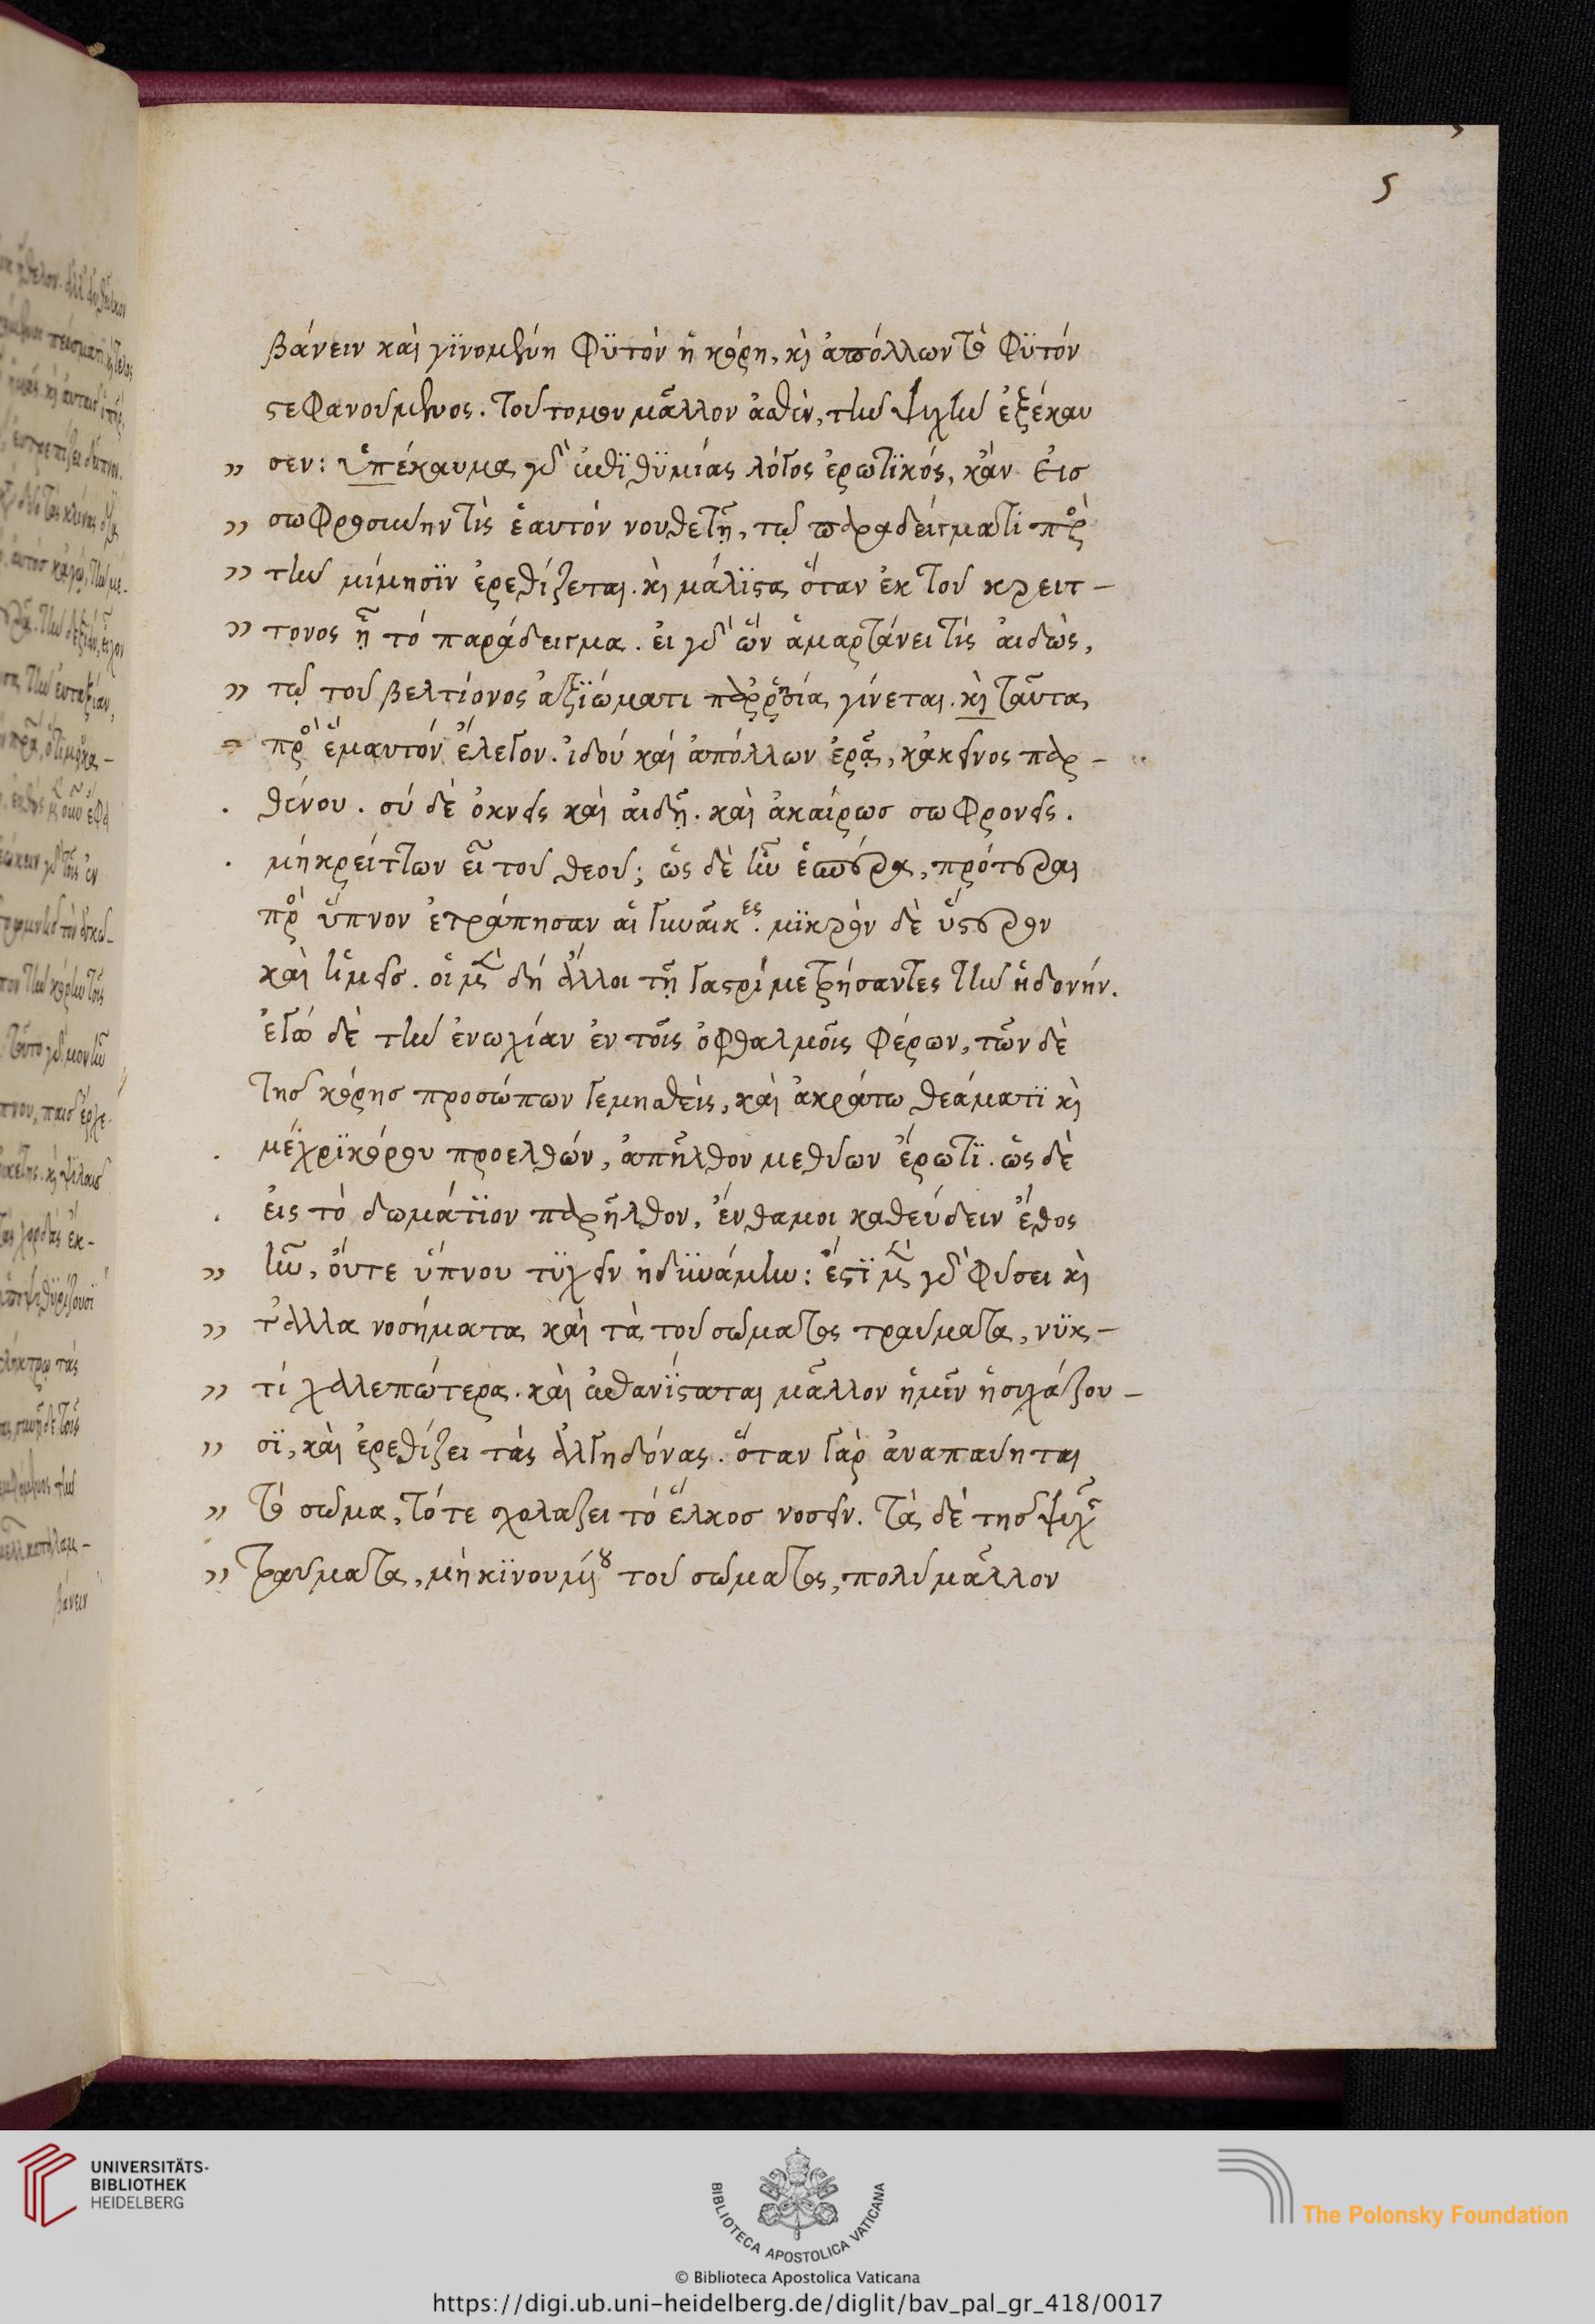 5
βάνειν καὶ γϊνομένη φϋτὸν ἡ κόρη, κὶ ἀπόλλων τὸ φϋτόν
στεφανούμενος. τοῦτο μου μᾶλλον ἆσθὲν, τὴν ψυχὴν ἐξέκαυ
σεν: ὑπέκαυμα γὰρ ἐπϊθϋμίας λόγος ἐρωτϊκός, κἄν εἰσ
σωφροσύνην τὶς ἑαυτόν νουθετῇ, τῷ παραδείγματι πρὸς
τὴν μίμησϊν ἐρεθίζεται. κὶ μάλϊστα ὅταν ἐκ τοῦ κρειτ-
τονος ᾖ τό παράδειγμα. εἰ γὰρ ὧν ἁμαρτάνει τίς αἰδὼς,
τῷ τοῦ βελτίονος ἀξϊώματι παρρησία γίνεται. κὶ ταῦτα
πρὸς ἐμαυτόν ἔλεγον. ἰδού καί ἀπόλλων ἐρᾷ, κἀκεῖνος παρ-
θένου. σύ δὲ ὀκνεῖς καὶ αἰδῇ. καὶ ἀκαίρωσ σωφρονεῖς.
μή κρείττων εἶ τοῦ θεοῦ; ὡς δὲ ἦν ἑσπέρα, πρότεραι
πρὸς ὕπνον ἐτράπησαν αἱ γυναῖκες. μϊκρὸν δὲ ὕστερον
καὶ ἡμεῖσ. οἱ μὲν δή ἄλλοι τῇ γαστρί μετρήσαντες τὴν ἡδονήν.
ἐγώ δὲ τὴν εὐωχίαν ἐν τοῖς ὀφθαλμοῖς φέρων, τῶν δὲ
τῆσ κόρησ προσώπων γεμησθεὶς, καὶ ἀκράτω θεάματϊ κὶ
μέχρϊ κόρου προελθών, ἀπῆλθον μεθύων ἔρωτϊ. ὡς δὲ
εἰς τὸ δωμάτϊον παρῆλθον, ἔνθα μοι καθεύδειν ἔθος
ἦν, οὔτε ὕπνου τϋχεῖν ἠδϋνάμην: ἔστϊ μὲν γὰρ φύσει κὶ
τἄλλα νοσήματα καὶ τὰ τοῦ σώματος τραύματα, νϋκ-
τί χαλεπώτερα. καὶ ἐπανίσταται μᾶλλον ἡμῖν ἡσυχάζου-
σϊ, καὶ ἐρεθίζει τάς ἀλγηδόνας. ὅταν γὰρ ἀναπαύηται
τὸ σῶμα, τότε σχολάζει τό ἕλκοσ νοσεῖν. τὰ δὲ τῆσ ψυχῆς
τραύματα, μὴ κϊνουμένου τοῦ σώματος, πολύ μᾶλλον
UNIVERSITÄTS-
BIBLIOTHEK
HEIDELBERG
BIBLIOTECA APOSTOLICA VATICANA
The Polonsky Foundation
© Biblioteca Apostolica Vaticana
https://digi.ub.uni-heidelberg.de/diglit/bav_pal_gr_418/0017